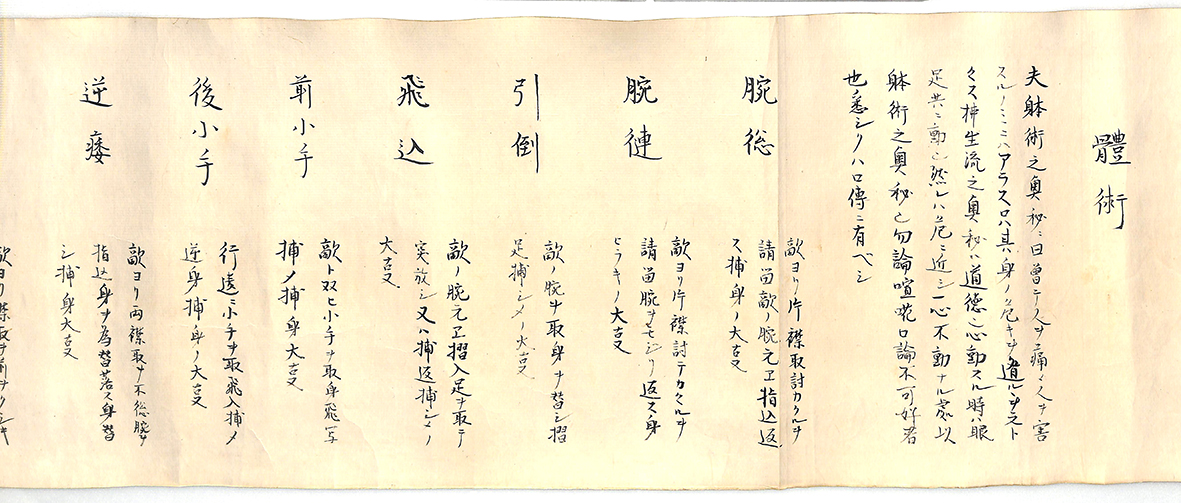 體術
夫躰術之奥秘ニ曰曽テ人ヲ痛々人ヲ害
スルノミニハアラス只其身ノ危キヲ遁ルヲヲト
クス 生流之奥秘ハ道徳之心動スル時ハ眼
足共ニ動也然レハ危ニ近シ一心不動ナル處以
躰術之奥秘也勿論喧嘩口論不可好者
也悉シクハ口傳ニ有ベシ
腕総
敵ヨリ片襟取討カクルヲ
請留敵ノ腕元エ指込返
ス捕身ノ大叓
腕縺
敵ヨリ片襟討テカクルヲ
請留腕ヲモジリ返ス身
ヒラキノ大叓
引倒
敵ノ腕ヲ取身ヲ替シ摺
足捕シメノ大叓
飛込
敵ノ腕元エ摺入足ヲ取テ
突放シ又ハ捕返捕シメノ
大叓
前小手
敵ト双ヒ小手ヲ取身飛写
捕メ捕身大叓
後小手
行違ニ小手ヲ取飛入捕メ
逆身捕身ノ大叓
逆
敵ヨリ両襟取ヲ不後腕ヲ
指込身ヲ為替落ス身替
シ捕身大叓
敵ヨリ襟取ヲ